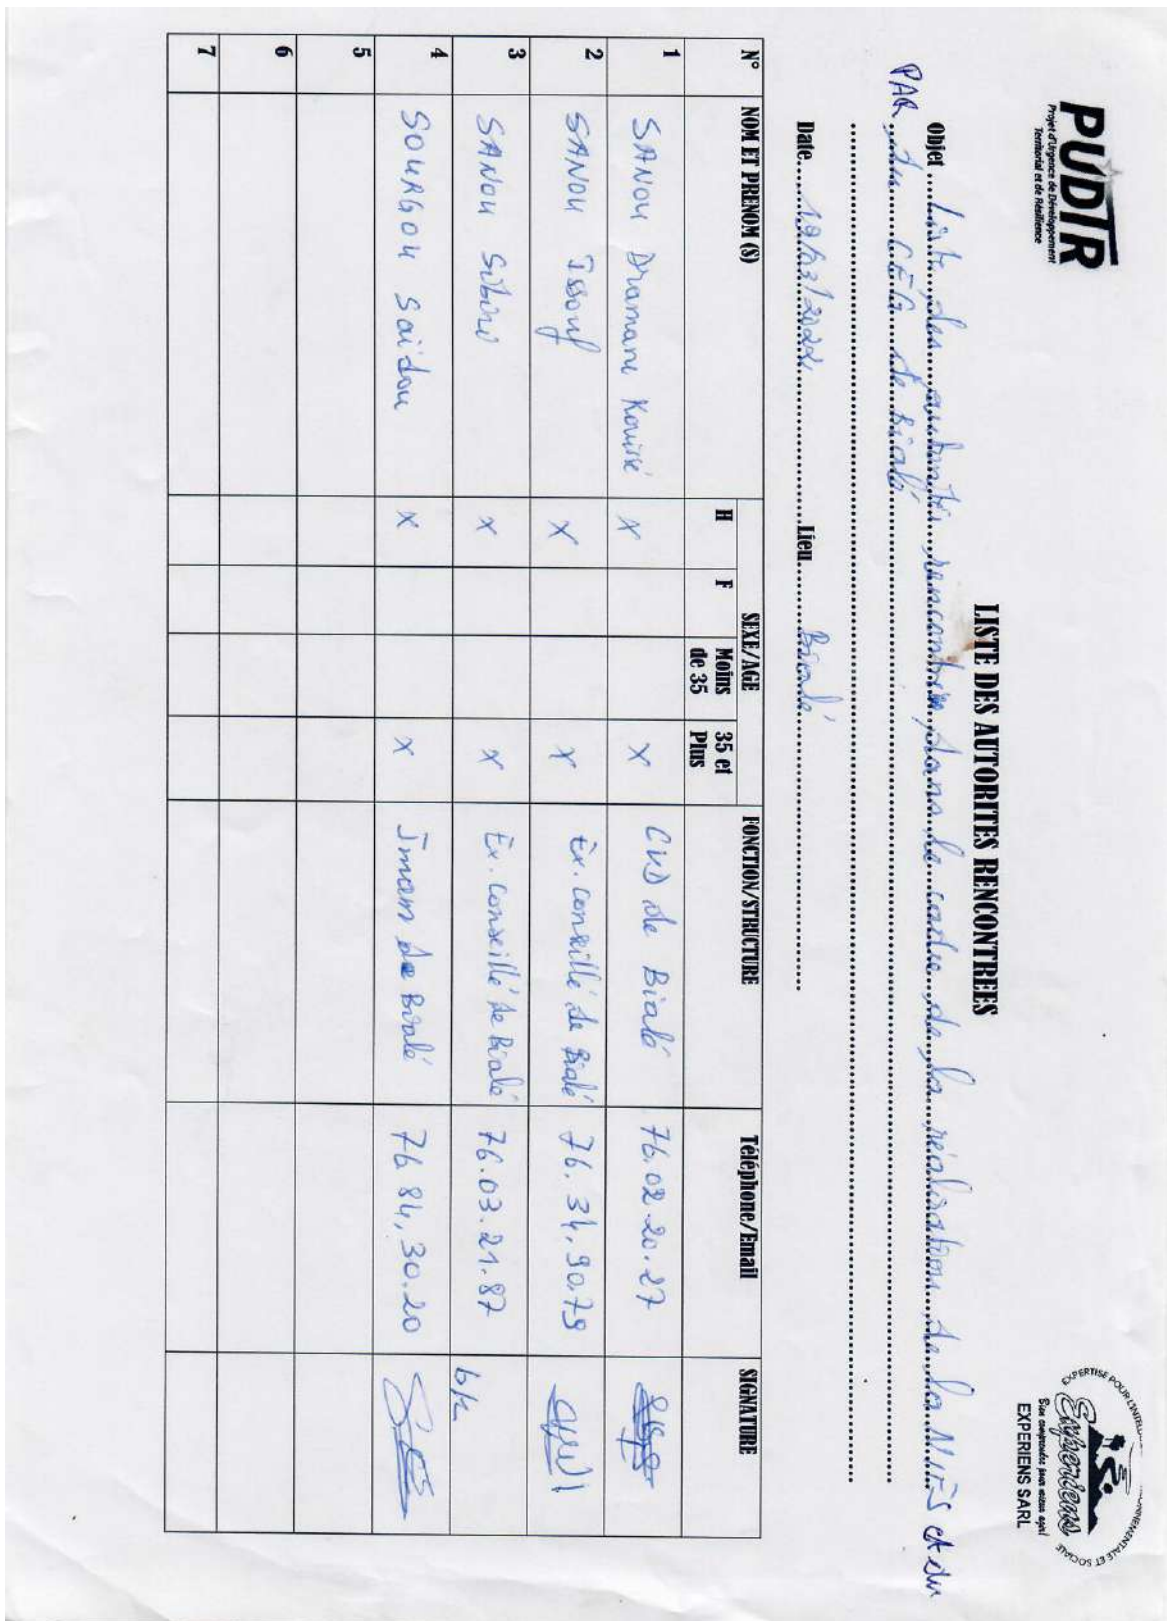 PUDTR
Projet d'Urgence de Développement
Territorial et de Résilience
EXPERTISE POUR ENVIRONNEMENTALE ET SOCIALE
Experiens
Bien comprendre pour mieux agir!
EXPERIENS SARL
LISTE DES AUTORITES RENCONTREES
Objet Liste des autorités rencontrées dans le cadre de la réalisation de la NIES et du
PAR du CEG de Bialé
Date 19/03/2022 Lieu Bialé
N° NOM ET PRENOM (S) SEXE/AGE FONCTION/STRUCTURE Téléphone/Email SIGNATURE
H F Moins de 35 35 et Plus
1 SANOU Dramane Kouissé X X CVD de Bialé 76.02.20.27
2 SANOU Issouf X X Ex. conseillé de Bialé 76.34.90.79
3 SANOU Sibiri X X Ex. conseillé de Bialé 76.03.21.87
4 SOURGOU Saidou X X Imam de Bialé 76 84,30.20
5
6
7